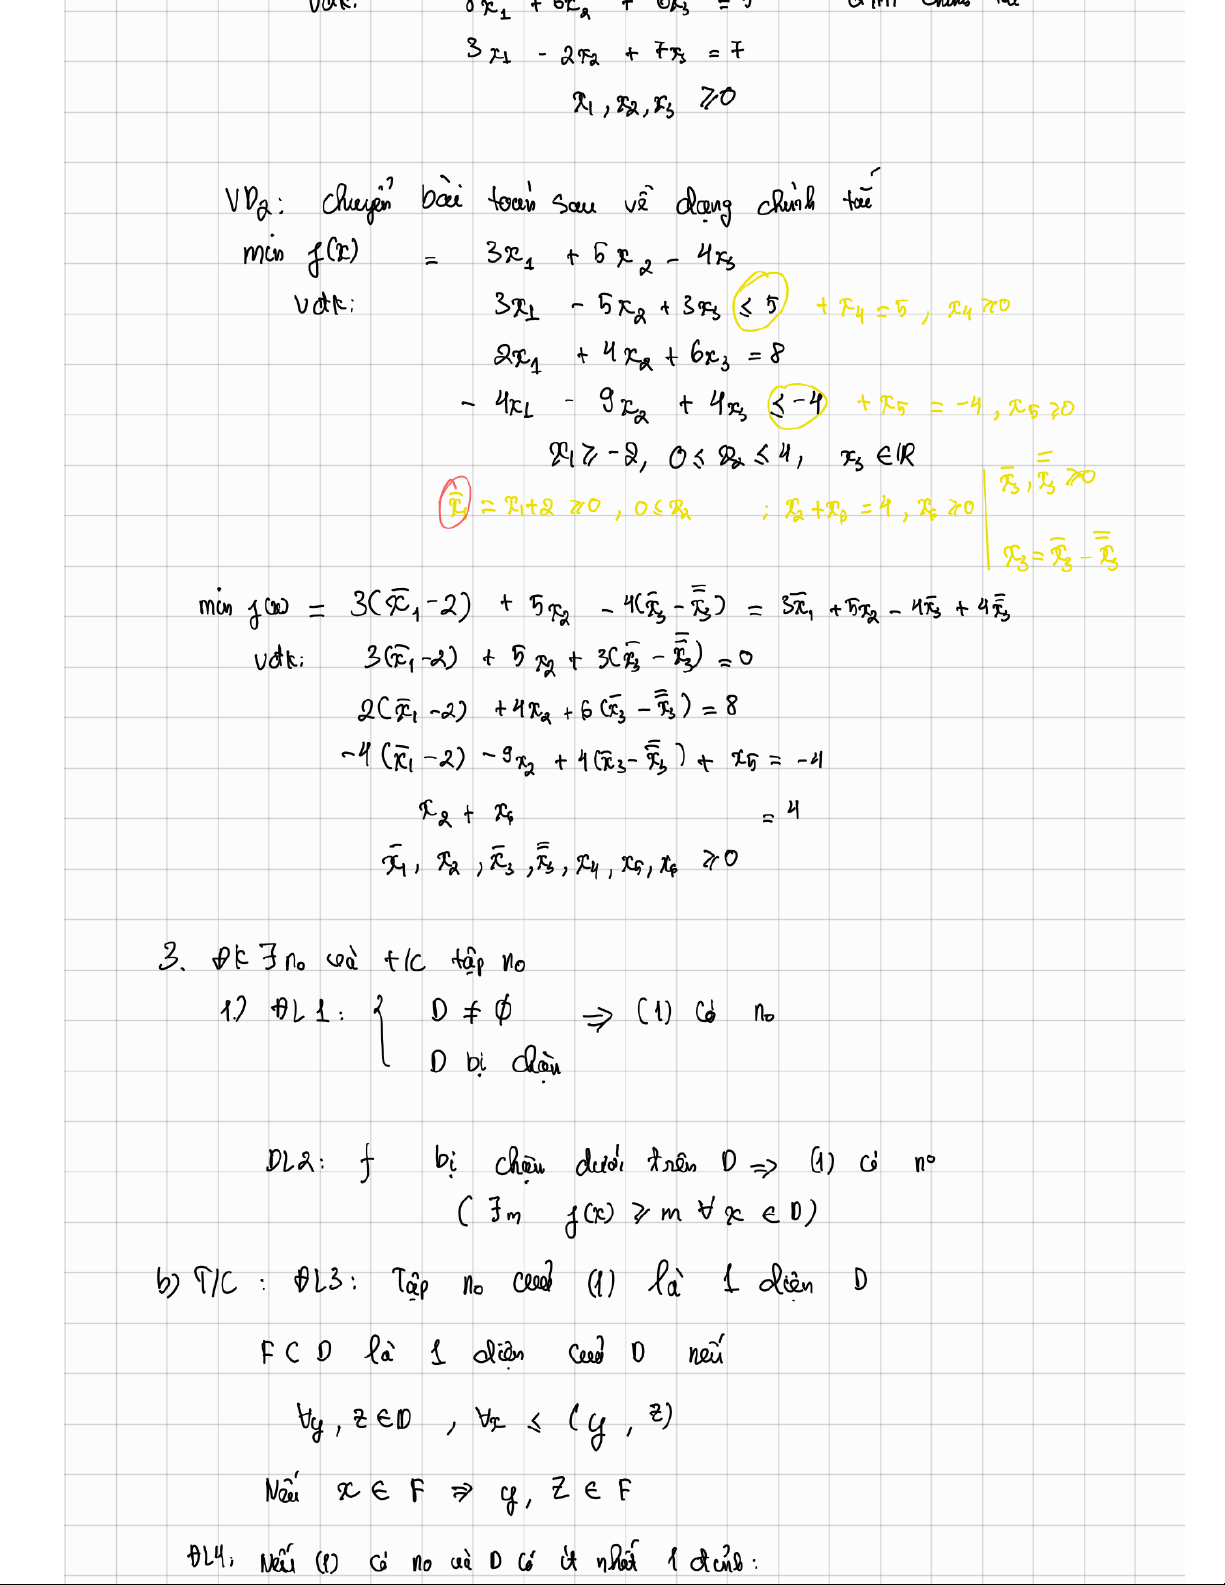 3x₁ - 2x₂ + 7x₃ = 7
x₁, x₂, x₃ ⩾ 0
VD₂: chuyển bài toán sau về dạng chính tắc
min f(x) = 3x₁ + 5x₂ - 4x₃
vđk: 3x₁ - 5x₂ + 3x₃ ≤ 5 + x₄ = 5, x₄ ⩾ 0
2x₁ + 4x₂ + 6x₃ = 8
- 4x₁ - 9x₂ + 4x₃ ≤ -4 + x₅ = -4, x₅ ⩾ 0
x₁ ⩾ -2, 0 ≤ x₂ ≤ 4, x₃ ∈ ℝ
x̄₁ = x₁+2 ⩾ 0, 0 ≤ x₂ ; x₂ + x₆ = 4, x₆ ⩾ 0
x̄₃, x̿₃ ⩾ 0
x₃ = x̄₃ - x̿₃
min f(x) = 3(x̄₁ - 2) + 5x₂ - 4(x̄₃ - x̿₃) = 3x̄₁ + 5x₂ - 4x̄₃ + 4x̿₃
vđk: 3(x̄₁ - 2) + 5x₂ + 3(x̄₃ - x̿₃) = 0
2(x̄₁ - 2) + 4x₂ + 6(x̄₃ - x̿₃) = 8
-4(x̄₁ - 2) - 9x₂ + 4(x̄₃ - x̿₃) + x₅ = -4
x₂ + x₆ = 4
x̄₁, x₂, x̄₃, x̿₃, x₄, x₅, x₆ ⩾ 0
3. ĐK ∃ no và t/c tập no
1.) ĐL1: { D ≠ ∅ ⇒ (1) có no
D bị chặn
DL2: f bị chặn dưới trên D ⇒ (1) có no
(∃m f(x) ⩾ m ∀x ∈ D)
b) T/C: ĐL3: Tập no của (1) là 1 diện D
F ⊂ D là 1 diện của D nếu
∀y, z ∈ D, ∀x ≤ (y, z)
Nếu x ∈ F ⇒ y, z ∈ F
ĐL4: Nếu (1) có no và D có ít nhất 1 đỉnh: